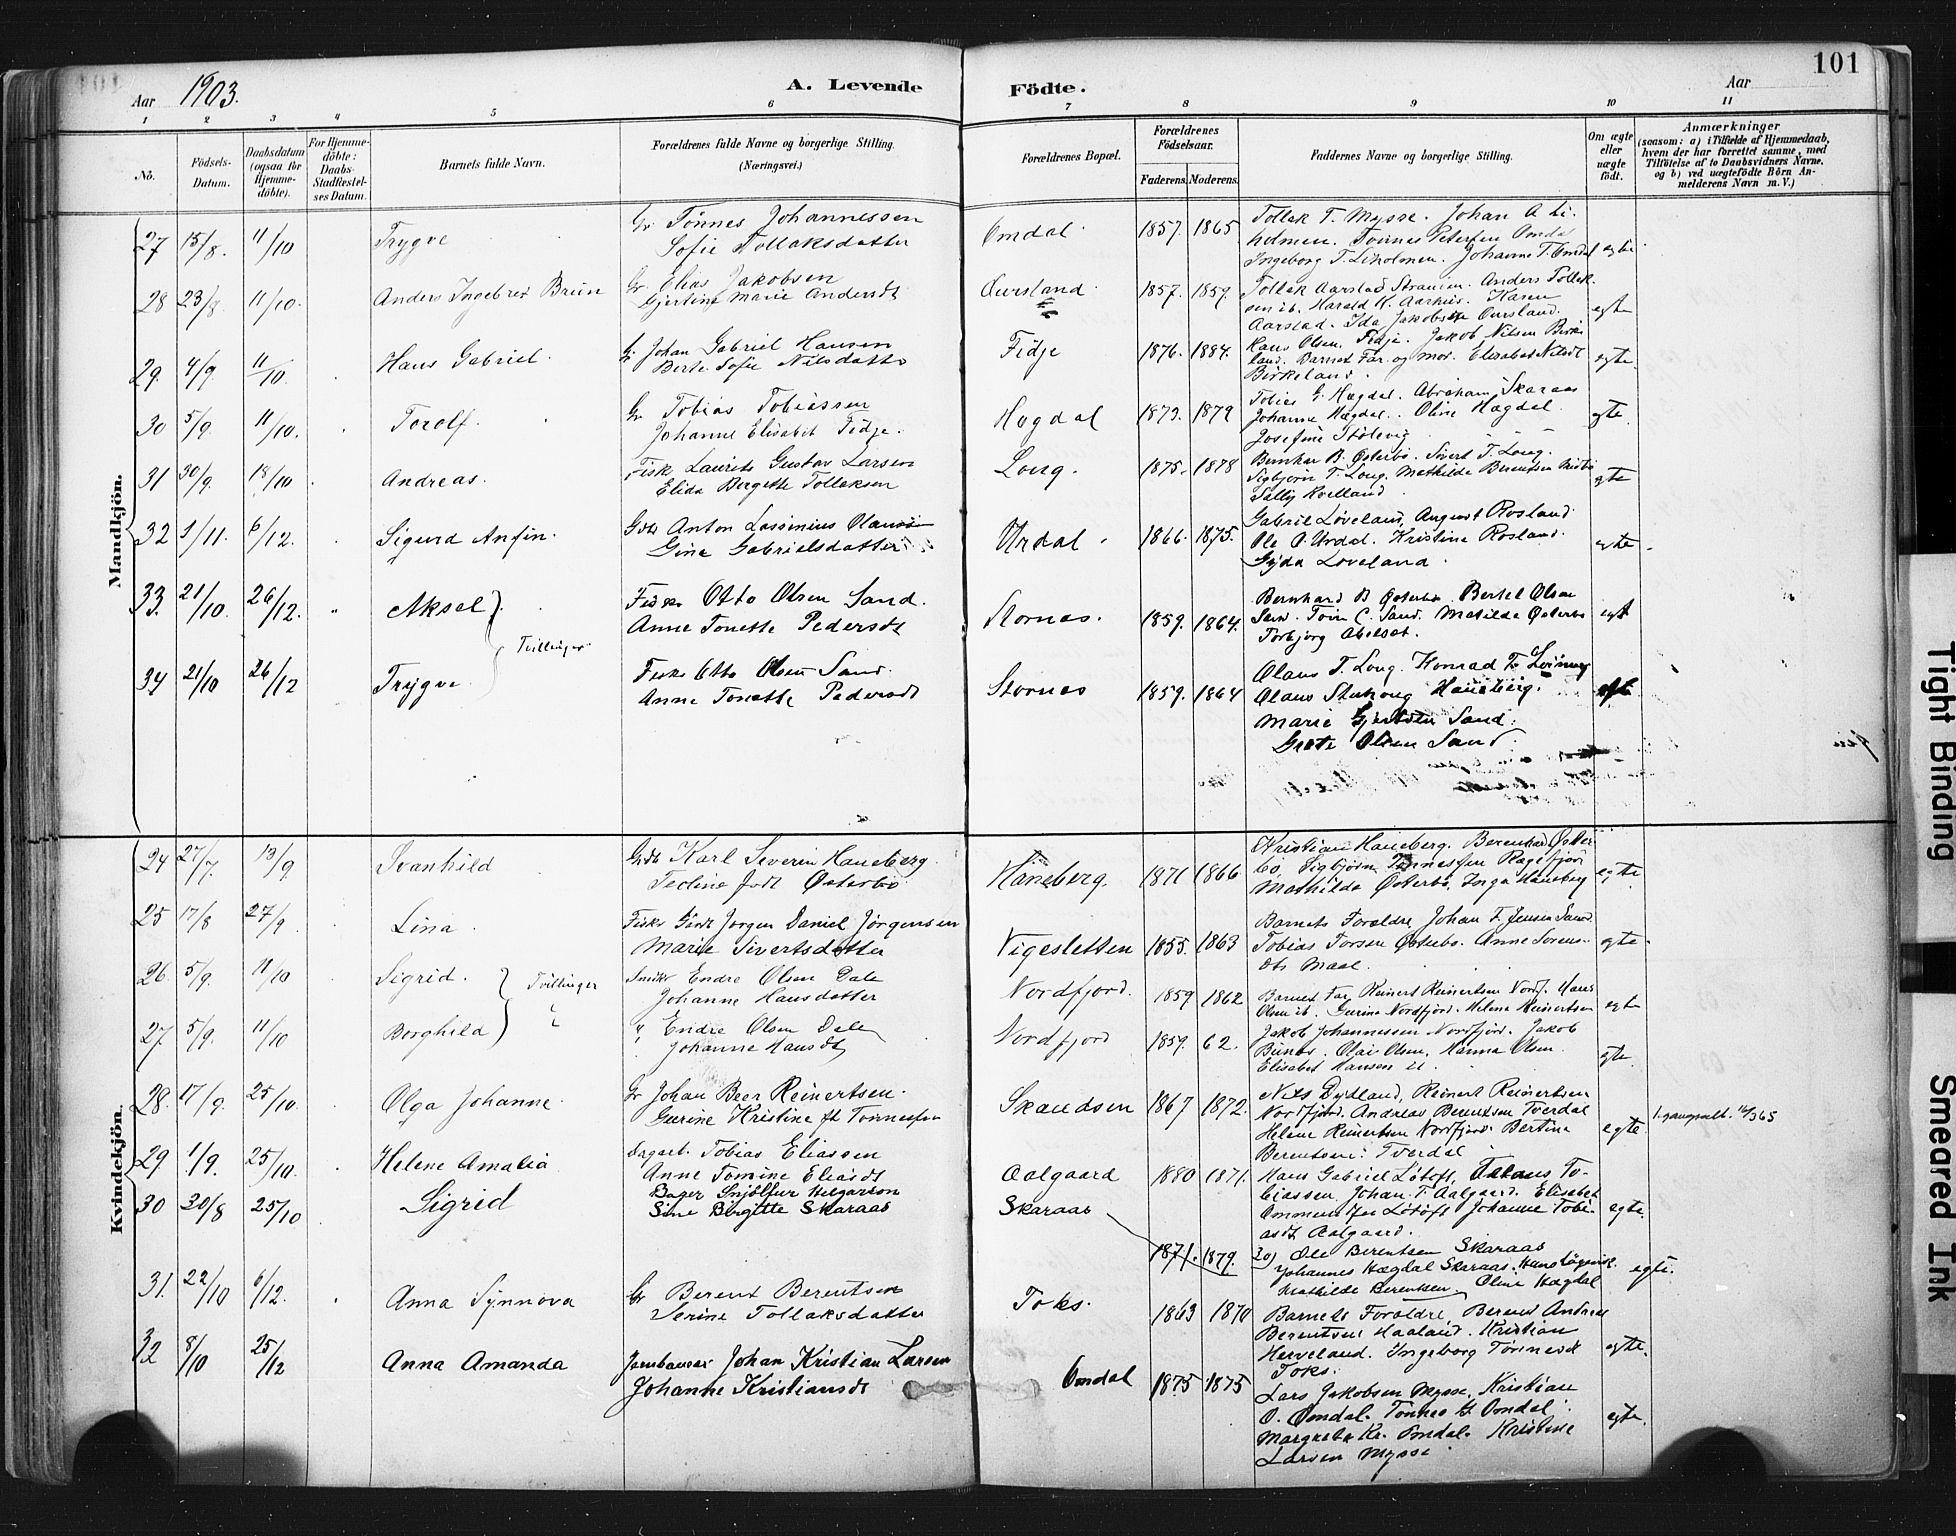 101
Aar 1903.
A. Levende Födte.
Aar
1 2 3 4 5 6 7 8 9 10 11
No.
Födsels-Datum.
Daabsdatum (ogsaa for Hjemme-döbte).
For Hjemme-döbte: Daabs-Stadfæstel-ses Datum.
Barnets fulde Navn.
Forældrenes fulde Navne og borgerlige Stilling.
(Næringsvei.)
Forældrenes Bopæl.
Forældrenes Födselsaar.
Faderens. Moderens.
Faddernes Navne og borgerlige Stilling.
Om ægte eller uægte födt.
Anmærkninger
(saasom: a) i Tilfælde af Hjemmedaab, hvem der har forrettet samme, med Tilföielse af to Daabsvidners Navne, og b) ved uægtefödte Börn An-melderens Navn m. V.)
Mandkjön.
27 15/8. 11/10 Trygve Gr Tönnes Johannessen
Sofie Tollaksdatter
Omdal. 1857. 1865
Tollak T. Mysse. Johan A. Li-
holmen. Tönnes Petersen Omdal
Ingeborg T. Liholmen. Johanne T. Omdal egte
28 23/8. 11/10. Anders Ingebret Bruun Gr Elias Jakobsen
Gjertine Marie Andersdt
Oursland. 1857. 1859.
Tollak Aarstad Stranden. Anders Tollak-
sen ib. Harald K. Aarhus. Karen
Aarstad. Ida Jakobsdt Oursland. egte
29. 4/9. 11/10. Hans Gabriel. Gr Johan Gabriel Hansen
Berte Sofie Nilsdatter
Fidje 1876. 1884.
Hans Olsen Fidje. Jakob Nilsen Birke
land. Barnets Far og mor. Elisabet Nilsdt
Birkeland. egte.
30 5/9 11/10. Torolf. Gr Tobias Tobiassen
Johanne Elisabet Fidje.
Hægdal 1879
Tobias G. Hægdal. Abraham Skaraas
Johanne Hægdal. Oline Hægdal.
Josefine Stölevig egte.
31 30/9. 18/10 Andreas. Fisk Laurits Gustav Larsen
Elida Bergette Tollaksen
Long. 1875. 1878
Bernhar B. Østerbö. Sivert T. Long.
Sigbjörn T. Long. Mathilde Berentsen
Sally Kvelland. egte
32 1/11. 6/12. Sigurd Anfin. Gds Anton Lassenius Olaussen
Gine Gabrielsdatter
Urdal. 1866. 1875.
Gabriel Löveland, August Rosland
Ole O. Urdal. Kristine Rosland.
Gyda Löveland. egte.
33. 21/10. 26/12. Aksel Tvillinger Fisk Otto Olsen Sand.
Anne Tonette Pedersdt
Stornes. 1859. 1864.
Bernhard B Østerbö. Bertel Olsen
Sand. Toin C. Sand. Matilde Østerbö
Torbjorg Abelset. egt
34 21/10 26/12 Trygve Fisk Otto Olsen Sand.
Anne Tonette Pedersdt
Stornes 1859. 1864
Olaus T. Long. Konrad T.
Olaus Haneberg.
Marie Gjertsen Sand.
Grete Olsen Sand. egt
Kvindekjön.
24 27/7. 13/9 Svanhild Gds Karl Severin Haneberg.
Tecline födt Østerbö
Haneberg. 1871 1866
Kristian Haneberg. Berenhard Öster
bö, Sigbjörn Tönnessen Rægefjor
Mathilde Østerbö, Inga Haneberg egte
25 17/8 27/9. Lina Fisk Gdt Jörgen Daniel Jörgensen
Marie Sivertsdatter
Vigesletten 1855. 1863
Barnets Forældre, Johan F. Jensen Sand.
Tobias Torsen Østerbö. Anne Sorens-
dtr Maal. egte.
26. 5/9. 11/10 Sigrid. Tvillinger Smikr Endre Olsen Dale
Johanne Hansdatter
Nordfjord. 1859 1862
Barnets Far, Reinert Reinertsen Nordfj. Hans
Olsen ib. Gurine Nordfjord. Helene Reinertsen egte
27 5/9. 11/10 Borghild " Endre Olsen Dale
Johanne Hansdt
Nordfjord 1859. 62.
Jakob Johannessen Nordfjord. Jakob
Bunes. Olai Olsen, Hanna Olsen.
Elisabet Hansen egte
28. 17/9. 25/10. Olga Johanne. Gr Johan Beer Reinertsen.
Gurine Kristine ft Tönnessen
Skandsen 1867 1872.
Nils Dydland, Reinert Reinertsen
Nordfjord. Andreas Berntsen Tverdal
Helene Reinertsen Nordfjord. Bertine
Berentsen: Tverdal egte.
29 1/9. 25/10. Helene Amalia Dagarb. Tobias Eliassen
Anne Tomine Eliasdt
Aalgaard 1880 1871.
Hans Gabriel Lötoft, Tobias To-
biassen, Johan T. Aalgaard. Elisabet
Lötoft Johanne Tobi-
asdt Aalgaard. egte.
30 20/8 25/10 Sigrid Bager Snjölfur Helgason
Sine Birgitte Skaraas
Skaraas 1871. 1879.
30) Ole Berentsen Skaraas
Johannes Hægdal Skaraas.
Mathilde Berentsen, Oline Hægdal egte.
31. 22/10 6/12. Anna Synnova Gr Berent Berentsen
Serine Tollaksdatter
Toks. 1863 1870
Barnets Forældre, Berent Andreas
Berentsen Haaland. Kristian
Herveland. Ingeborg Tönnesdt
Toks. egte.
32 8/10 25/12 Anna Amanda Johan Kristian Larsen
Johanne Kristiansdt
Omdal 1875 1875
Lars Jakobsen Mysse, Kristian
O. Omdal. Tönnes G. Omdal.
Margrete Kr. Omdal. Kristine
Larsen Mysse. egte.
Tight Binding
Smeared Ink